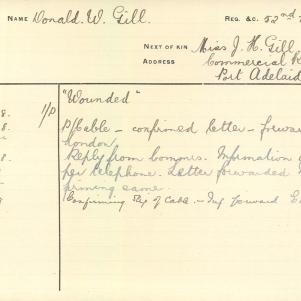 NAME Donald. W. Gill. REG. &C. 52nd
NEXT OF KIN Miss J. H. Gill
ADDRESS Commercial R
Port Adelaid
8. 1/P "Wounded"
8. P/Cable - confirmed letter - forwar
London.
Reply from
8. per telephone. Letter forwarded
same.
Confirming of Cable - Inf forward